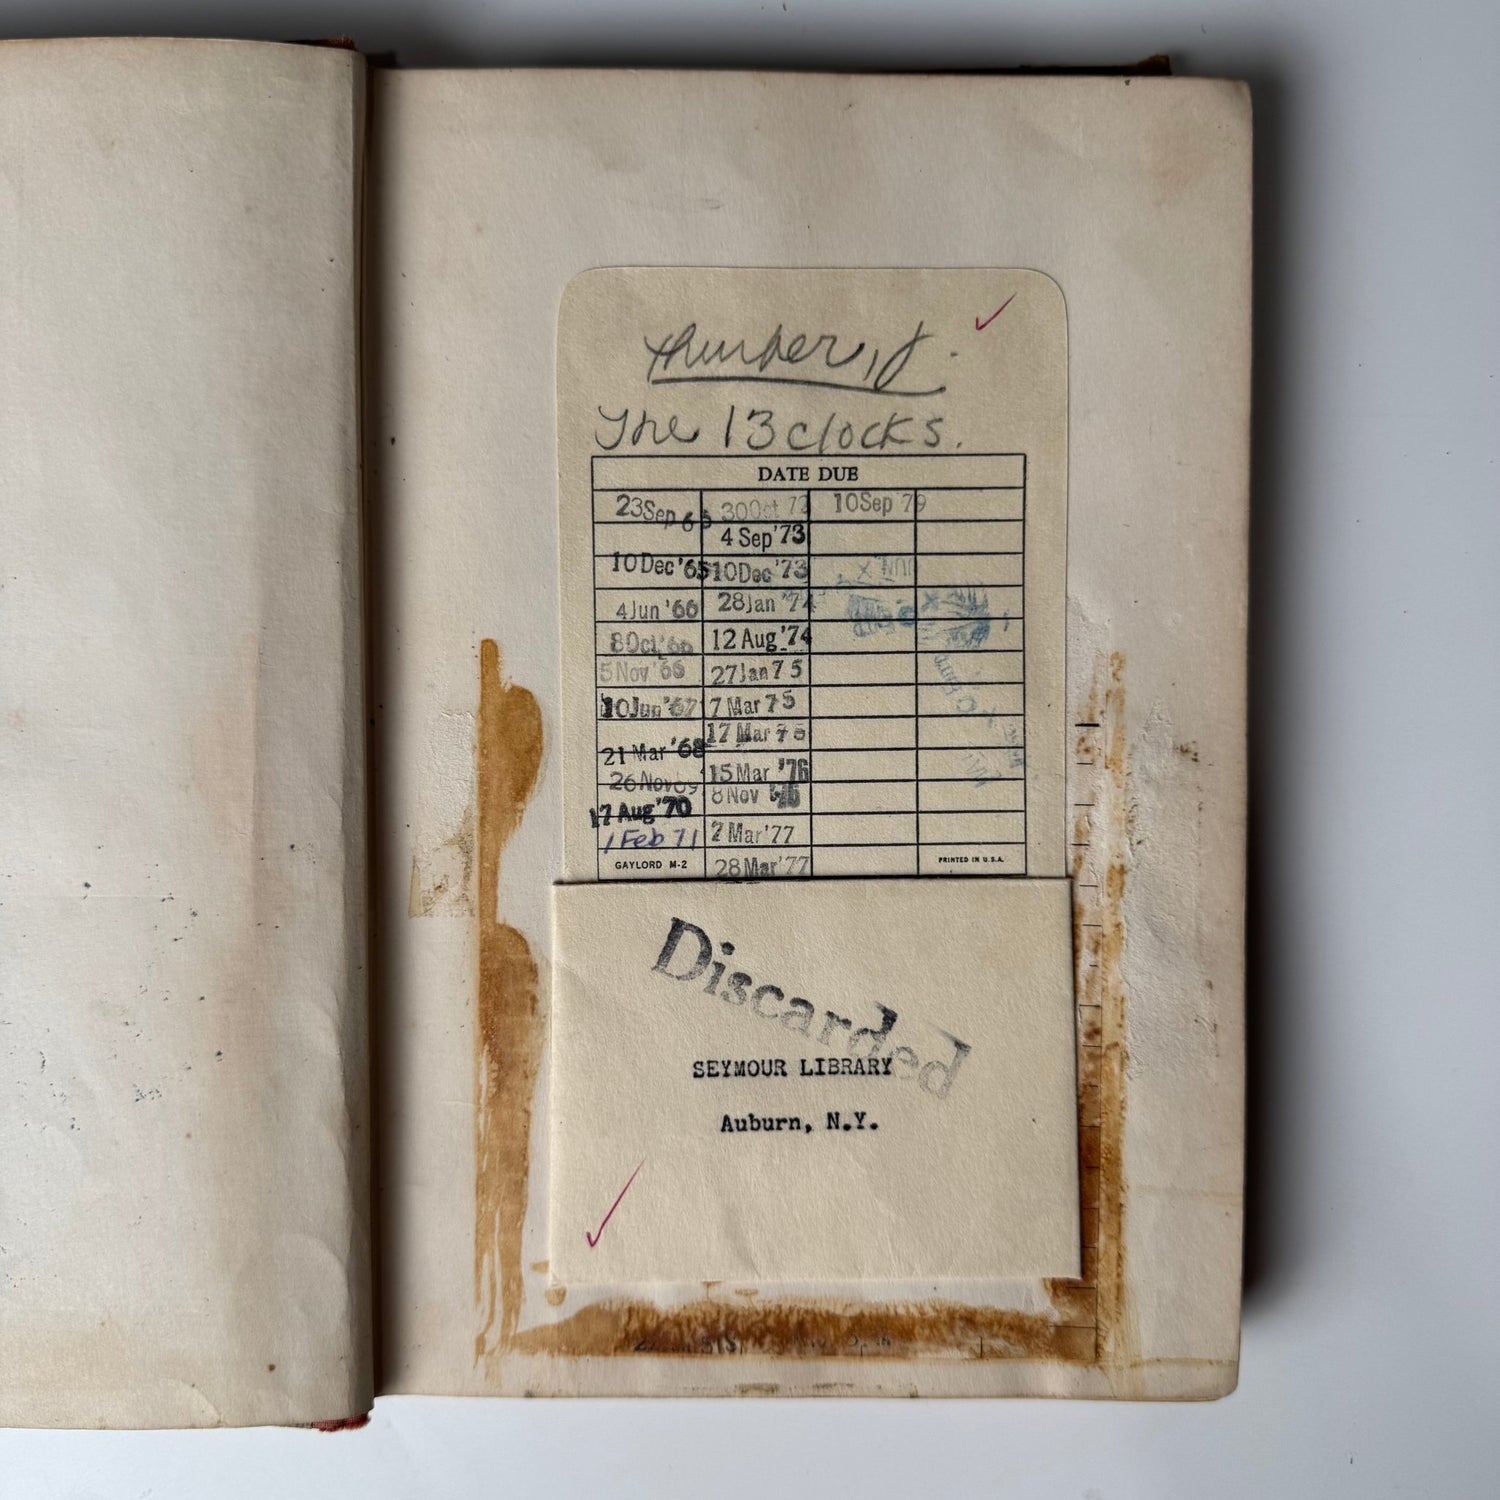 Thurber, J.
The 13 clocks.
DATE DUE
23 Sep 30 Oct 72 10 Sep 79
4 Sep '73
10 Dec '65 10 Dec '73
4 Jun '66 28 Jan '74
8 Oct '66 12 Aug '74
5 Nov '66 27 Jan 75
10 Jun '67 7 Mar 75
17 Mar
21 Mar '68
26 Nov 69 15 Mar '76
17 Aug '70 8 Nov
1 Feb 71 2 Mar '77
GAYLORD M-2 28 Mar '77 PRINTED IN U.S.A.
Discarded
SEYMOUR LIBRARY
Auburn, N.Y.